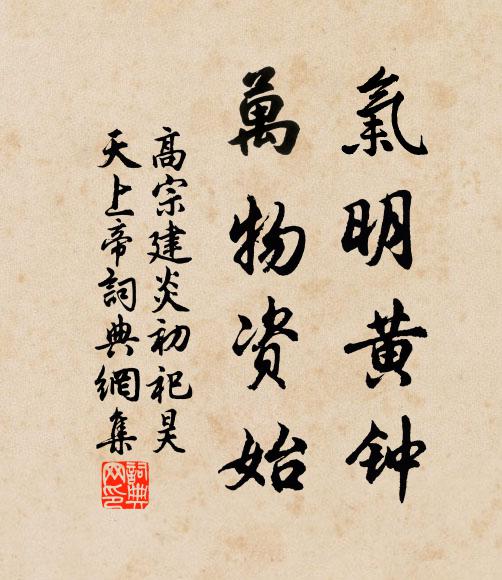 氣明黄钟
萬物资始
高宗建炎初祀昊
天上帝詞典網集
詞典
网印